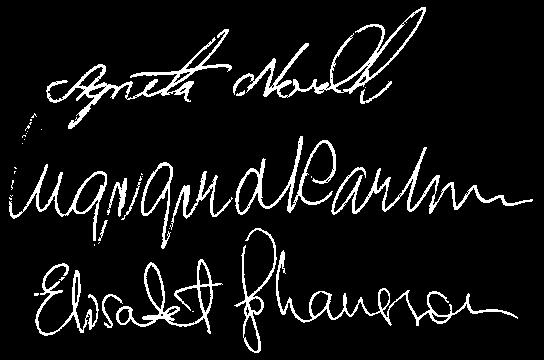 Agneta Nordh
Margareta Karlsson
Elisabet Johansson